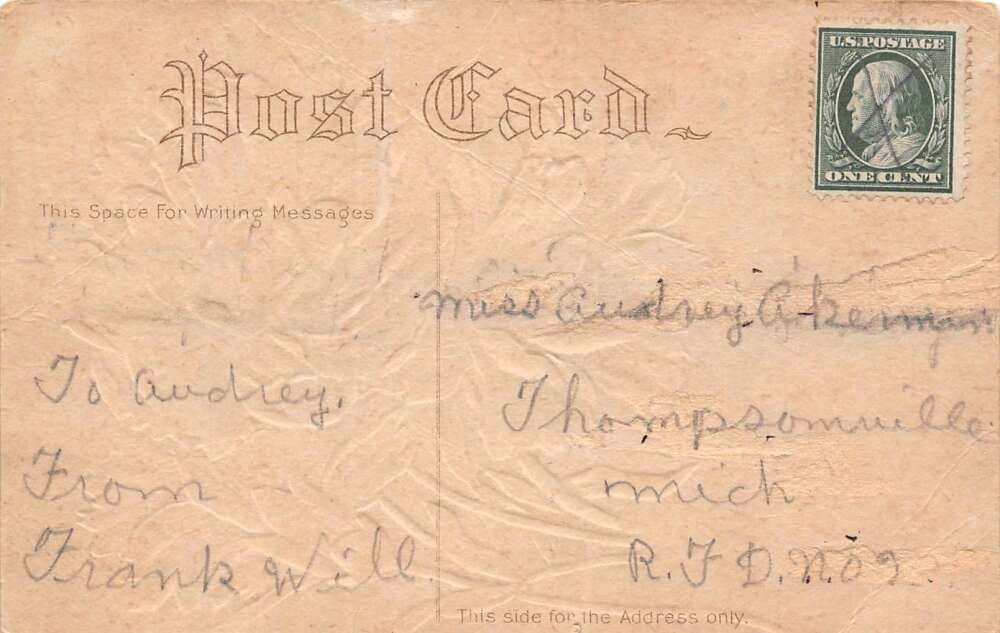 Post Card
U.S. POSTAGE
ONE CENT
This Space For Writing Messages
To Audrey.
From
Frank Will.
Miss Audrey Akerman
Thompsonville
Mich
R.F.D. No 2
This side for the Address only.